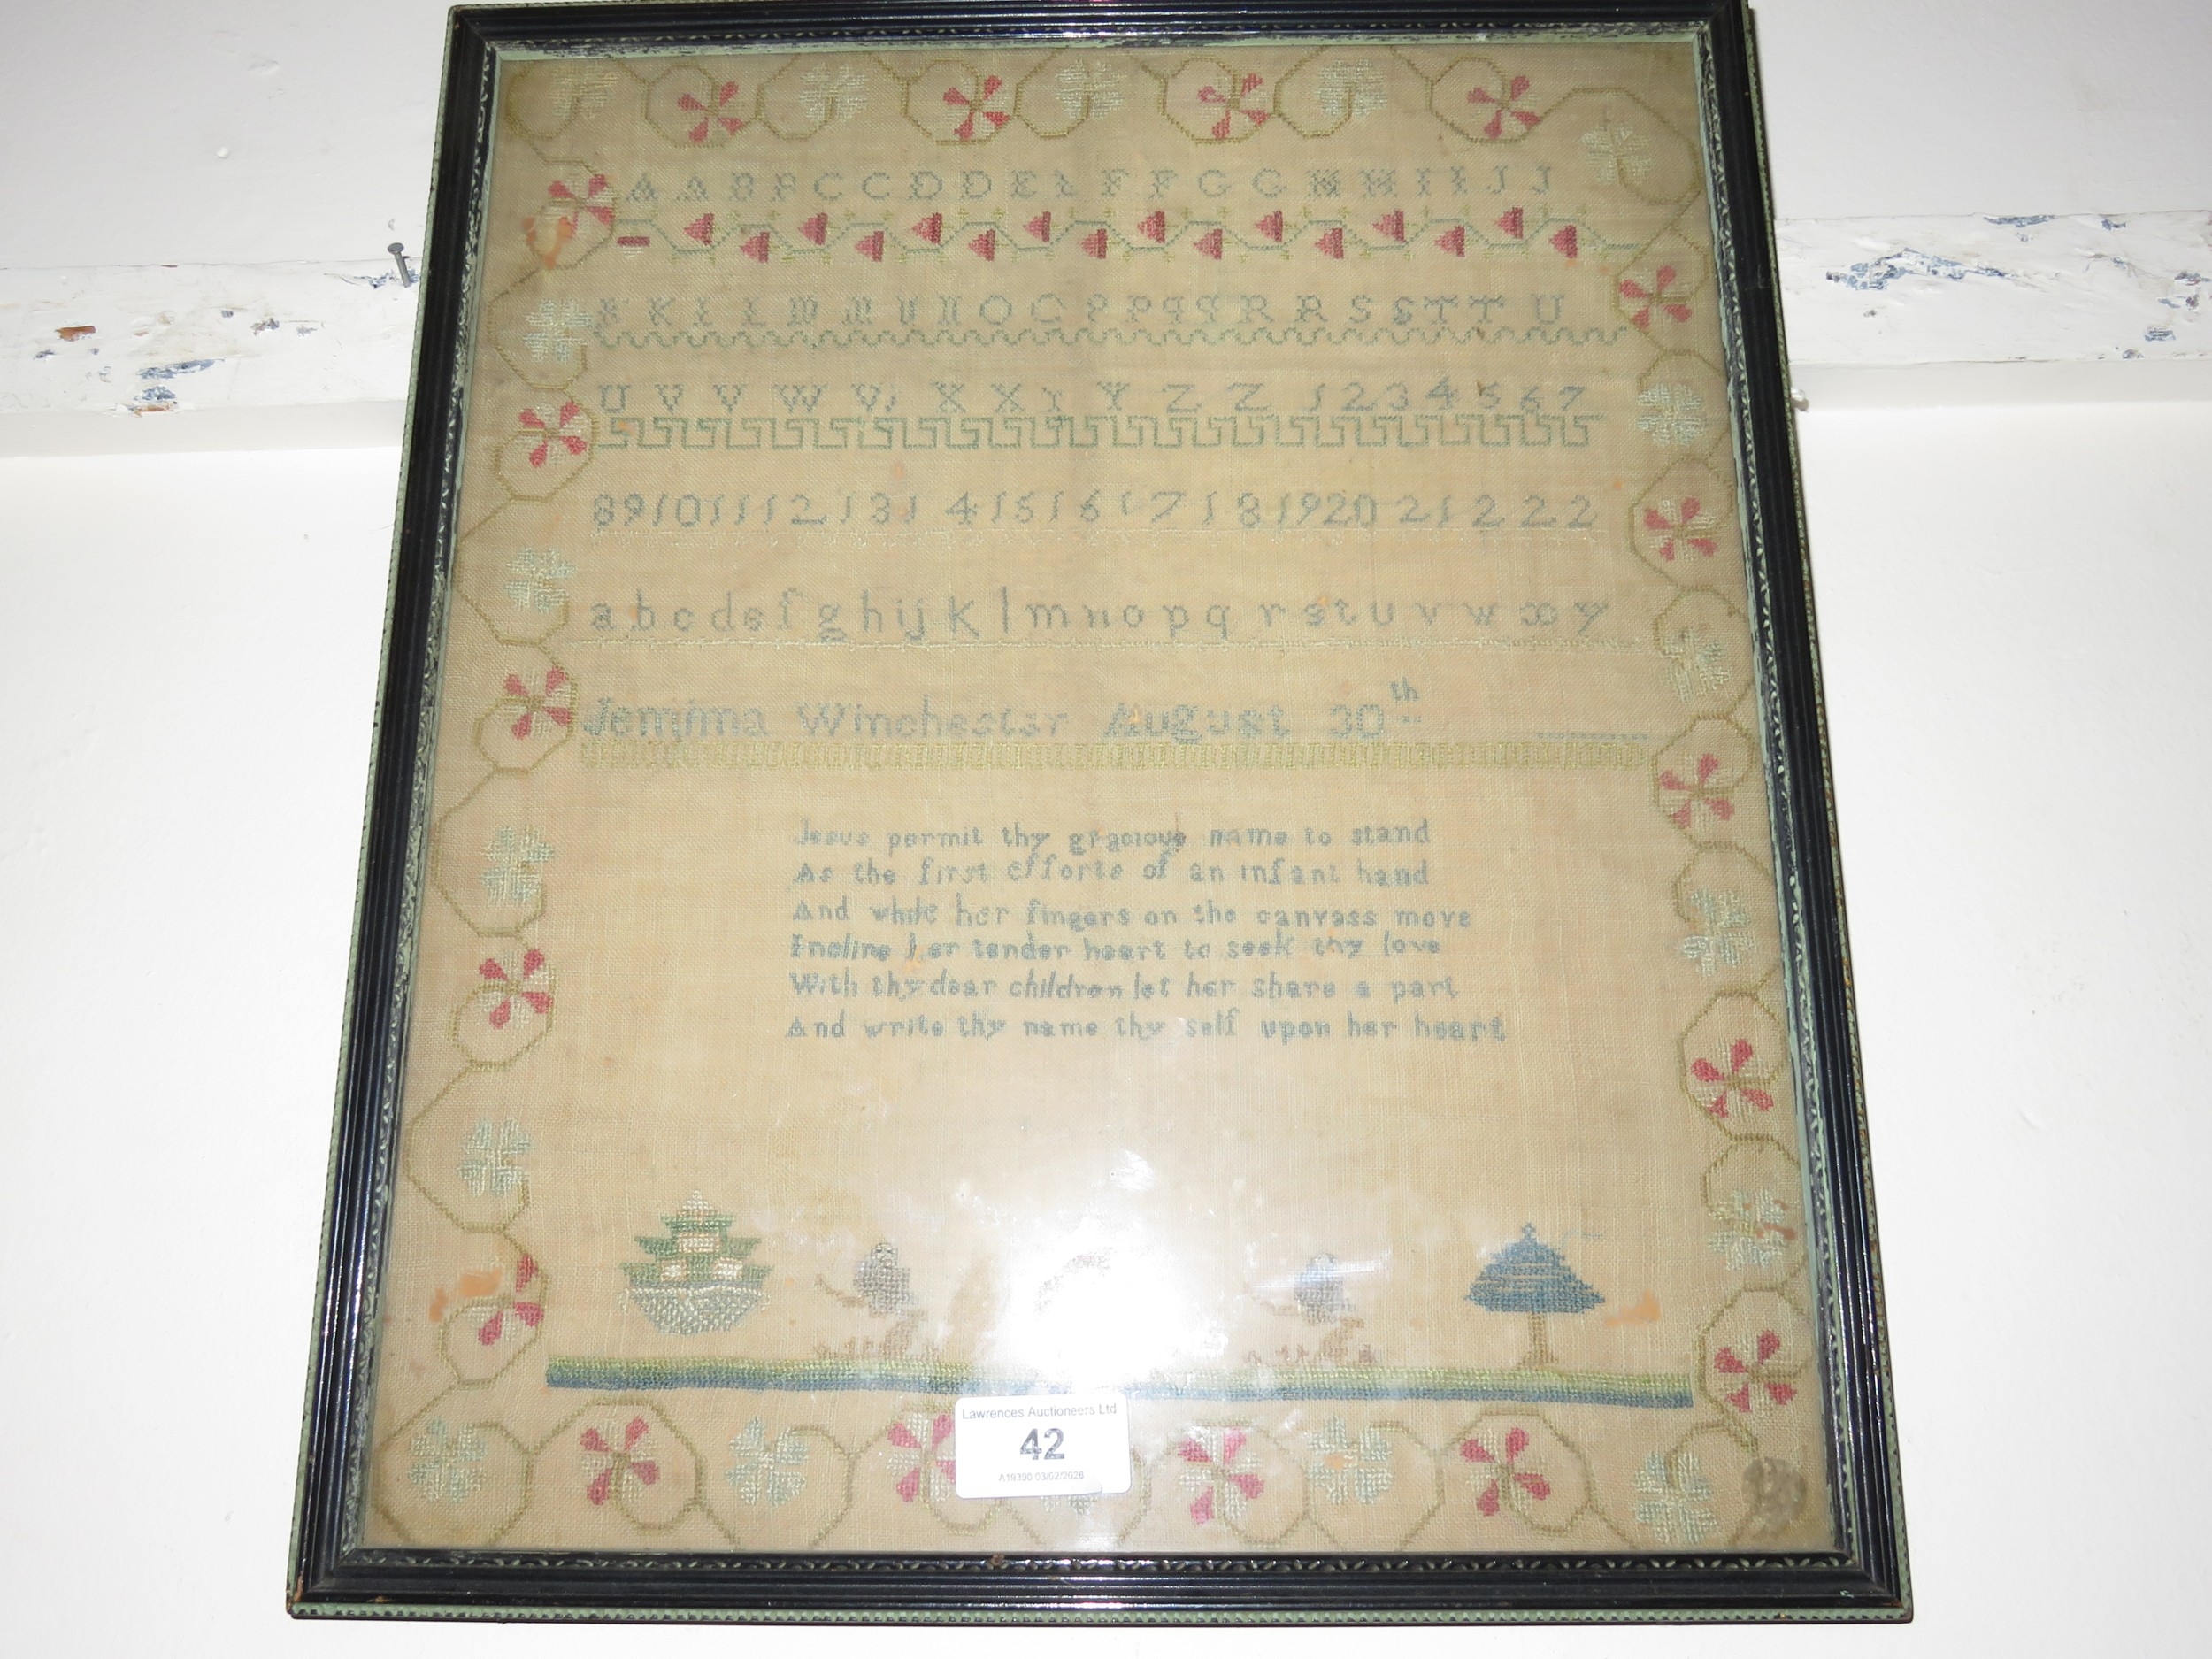 A A B B C C D D E E F F G G H H I I J J
K K L L M M N N O O P P Q Q R R S S T T U
U V V W W X X Y Y Z Z 1 2 3 4 5 6 7
8 9 10 11 12 13 14 15 16 17 18 19 20 21 22 2
a b c d e f g h i j k l m n o p q r s t u v w x y
Jemima Winchester August 30th
Jesus permit thy gracious name to stand
As the first efforts of an infant hand
And while her fingers on the canvass move
Incline her tender heart to seek thy love
With thy dear children let her share a part
And write thy name thy self upon her heart
Lawrences Auctioneers Ltd
42
A19390 03/02/2026